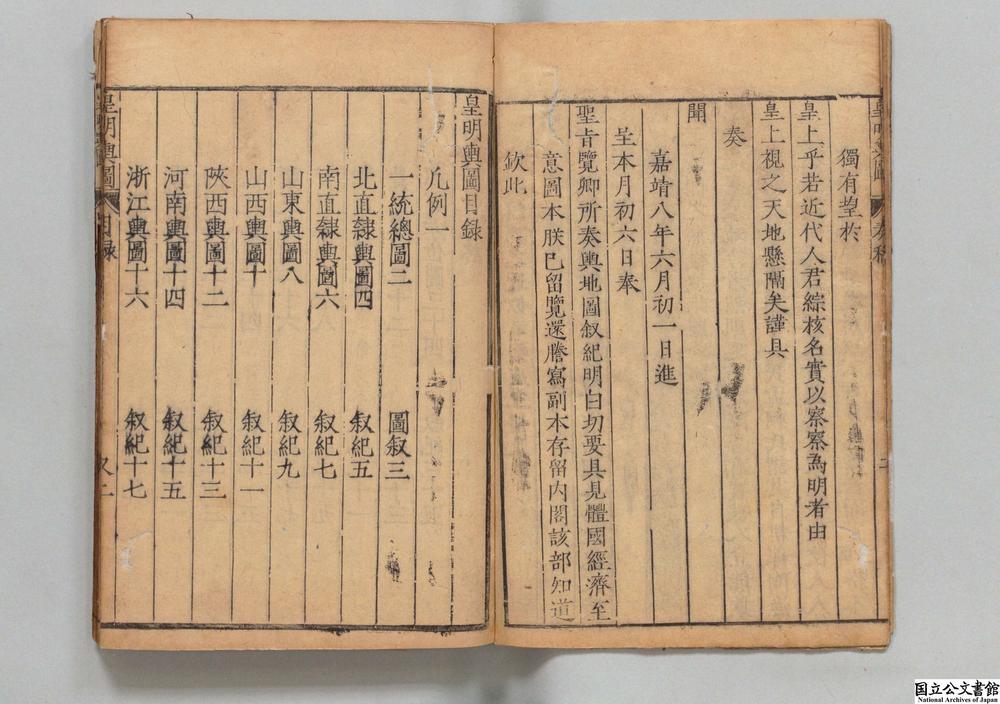 獨有望於
皇上乎若近代人君綜核名實以察察為明者由
皇上視之天地懸隔矣謹具
奏
聞
嘉靖八年六月初一日進
呈本月初六日奉
聖旨覽卿所奏輿地圖叙紀明白切要具見體國經濟至
意圖本朕已留覽還謄寫副本存留内閣該部知道
欽此
皇明輿圖目録
凡例一
一統總圖二 圖叙三
北直隸輿圖四 叙紀五
南直隸輿圖六 叙紀七
山東輿圖八 叙紀九
山西輿圖十 叙紀十一
陝西輿圖十二 叙紀十三
河南輿圖十四 叙紀十五
浙江輿圖十六 叙紀十七
皇明輿圖 目録
国立公文書館
National Archives of Japan